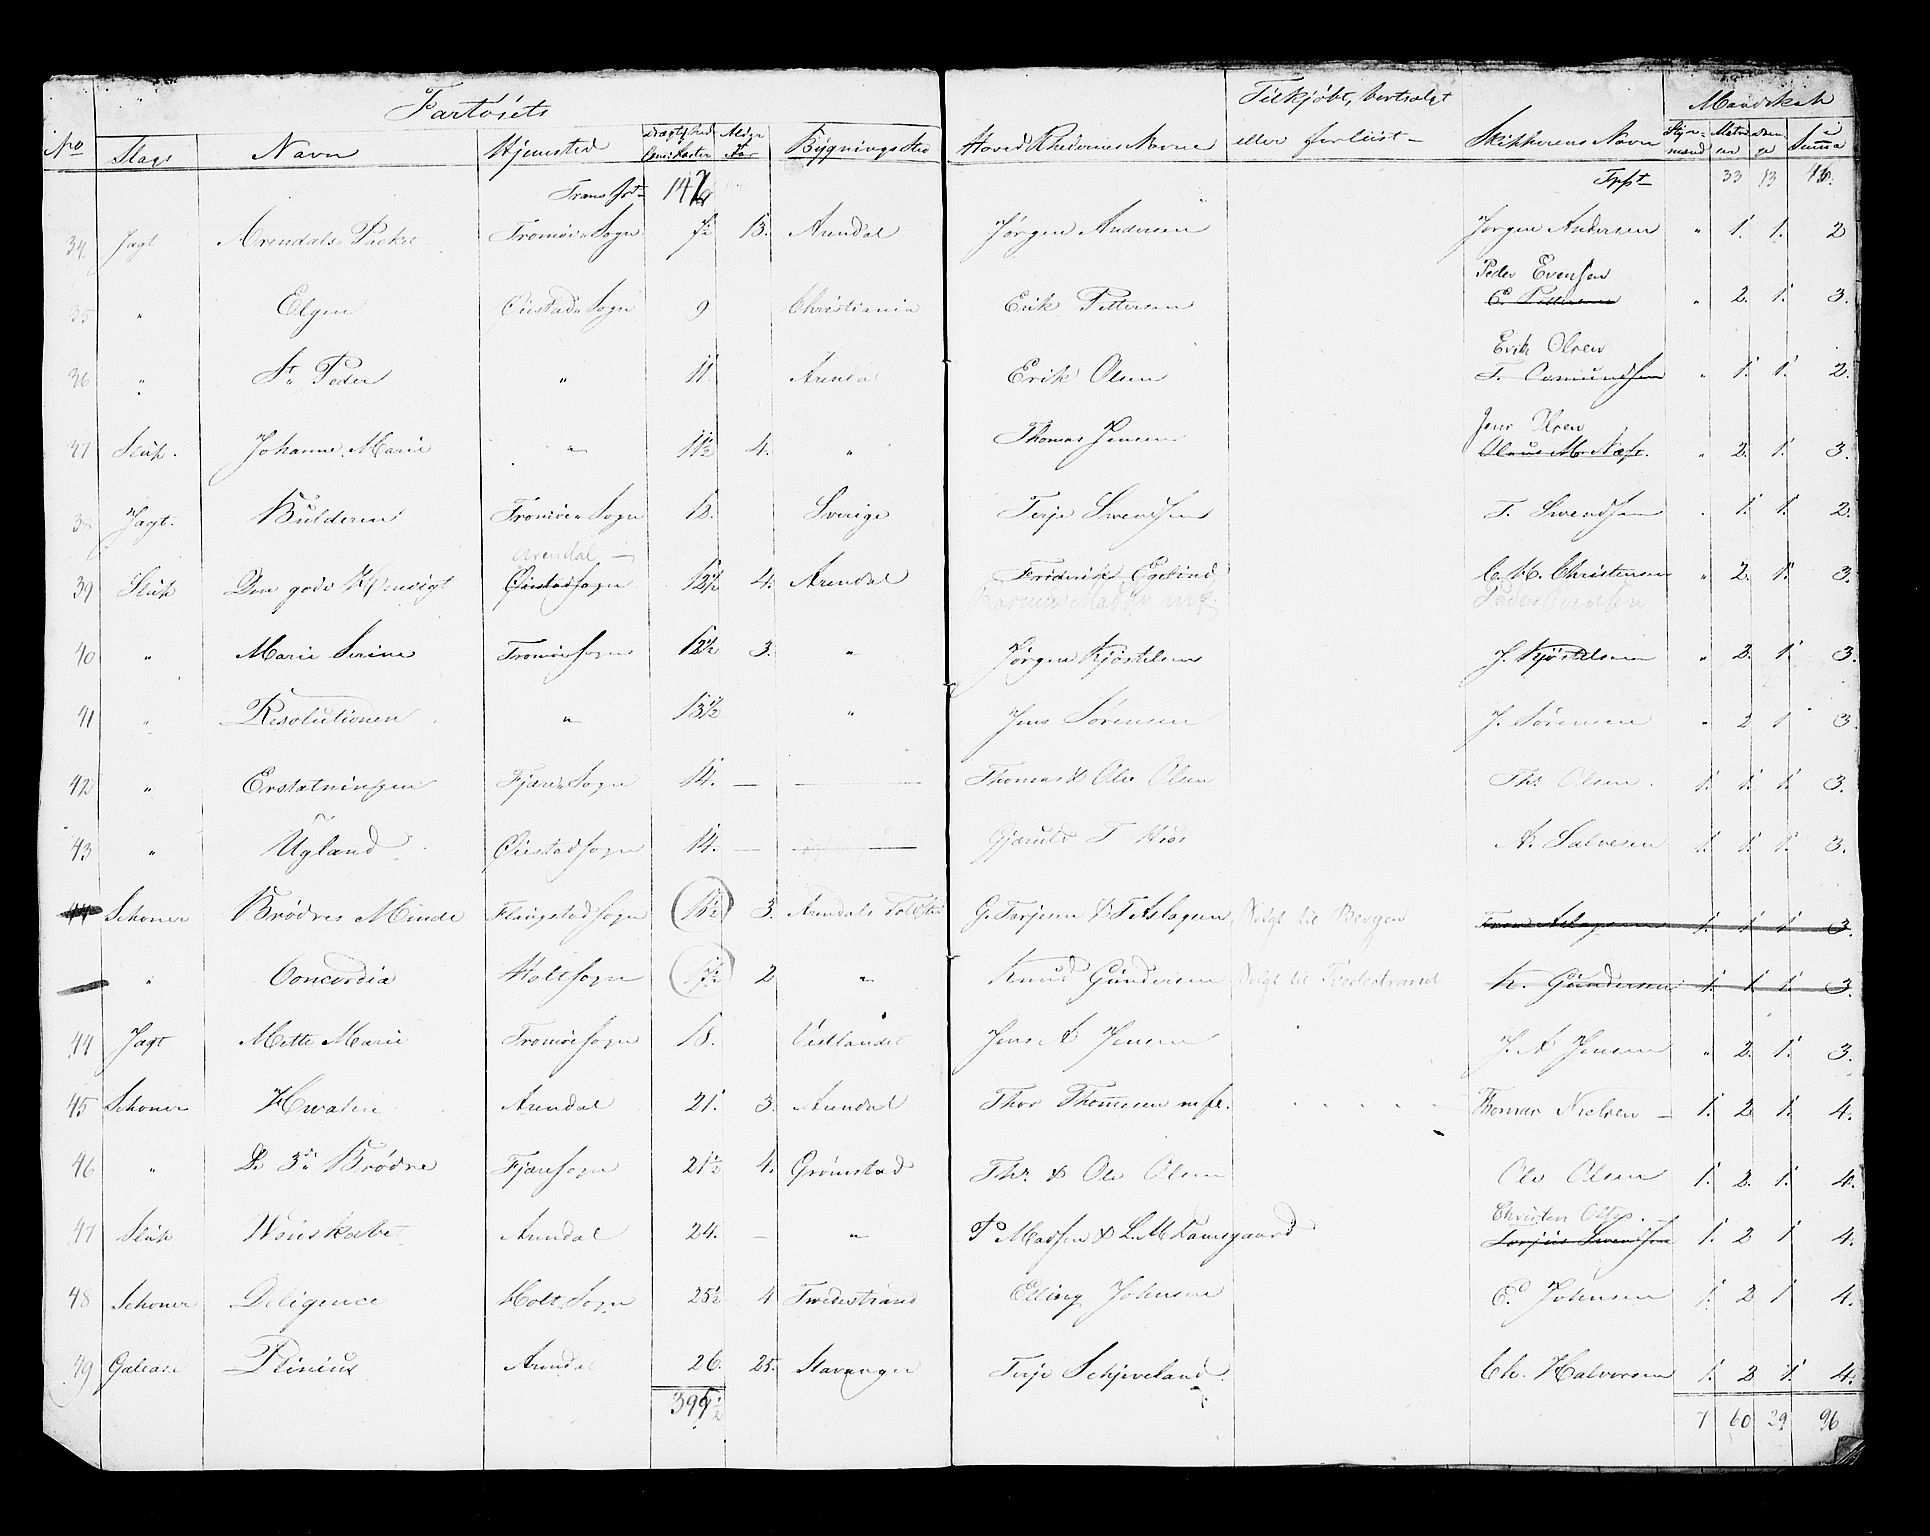 Fartøiets
Tilkjøbt, bortsolgt
Mandskab
No Slags Navn Hjemsted Drægtighed Com: Læster Alder Aar Bygningssted Hoved Rhederens Navne eller forliist Skipperens Navn Styrmand Matroser i Summa
Transpt 33 13
34. Jagt Arendals Packet Tromøe Sogn 7½ 13. Arendal Jørgen Andersen Jørgen Andersen " 1. 1. 2
Peder Evensen
35 " Elgen Øiestad Sogn 9 Christiania Erik Pettersen E. Pettersen " 2. 1. 3.
Erik Olsen
36 " St. Peder " 11. Arendal Erik Olsen T. Osmundsen " 1. 1. 2.
Jens Olsen
37 Slup. Johanne Marie " 11½ 4. " Thomas Jensen Olaus M. Næss. " 2. 1. 3.
38 Jagt. Bulderen Tromøe Sogn 12. Sverige Terje Svendsen T. Svendsen 1. 1. 2.
Arendal
39 Slup Den gode Hensigt Øiestad Sogn 12½ 4. Arendal Friderik C. M. Christensen " 2. 1. 3.
Rasmus Peder Evensen
40 " Marie Serine Tromøe Sogn 12½ 3. " Jørgen Kjøstelsen J. Kjøstelsen " 2. 1. 3.
41 " Resolutionen " 13½ " Jens Sørensen J. Sørensen " 2 1 3.
42 " Erstatningen Fjære Sogn 14. — — Thomas & Ole Olsen Th. Olsen. 1. 1. 1. 3.
43 " Ugland Øiestad Sogn 14. — A. Salvesen 1. 1. 1. 3.
44 Schoner Brødres Minde Flangstad Sogn 3. Arendals G. Terjesen & T. Aslagsen Solgt til Bergen Aslagsen 1. 1 1 3.
" Concordia Holt Sogn 17½ 2 " Knud Gundersen Solgt til Tvedestrand K. Gundersen 1. 1 1. 3.
44 Jagt Mette Marie Tromøe Sogn 18. Vestlandet Jens A Jensen J. A Jensen " 2. 1. 3.
45 Schoner Hvalen Arendal 21. 3. Arendal Thor Thomesen m. fl. Thomas Nielsen — 1. 2 1. 4.
46 " De 3de Brødre Fjære Sogn 21½ 4. Grimstad Th. & Ole Olsen Ole Olsen 1. 2. 1. 4.
Christen
47 Slup Venskabet Arendal 24. — " P Madsen & L. M. Svendsen 1. 2 1 4.
48 Schoner Deligence Holt Sogn 25½ 4 Tvedestrand Elling Johnsen E. Johnsen 1. 2 1 4.
49 Galease Plinius Arendal 26. 25. Stavanger Terje Schjeveland. Ch. Halvorsen 1. 2 1. 4.
7 60 29 96